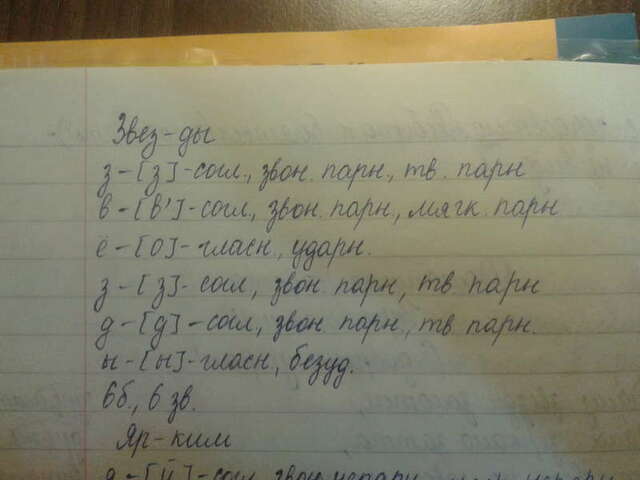 Звез-ды
з-[з]-согл., звон. парн., тв. парн
в-[в']-согл., звон. парн., мягк. парн
ё-[о]-гласн., ударн.
з-[з]-согл., звон. парн, тв. парн
д-[д]-согл., звон. парн, тв. парн.
ы-[ы]-гласн., безуд.
6б., 6 зв.
Яр-ким
я-[й]-согл., звон. непарн.,